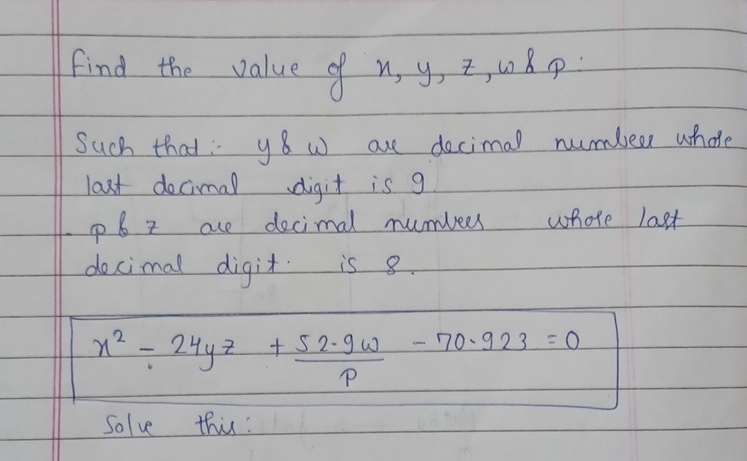 Find the value of x, y, z, w & p:
Such that:- y & w are decimal numbers whose
last decimal digit is 9.
p & z are decimal numbers whose last
decimal digit is 8.
x² - 24yz + 52.9w/p - 70.923 = 0
Solve this: